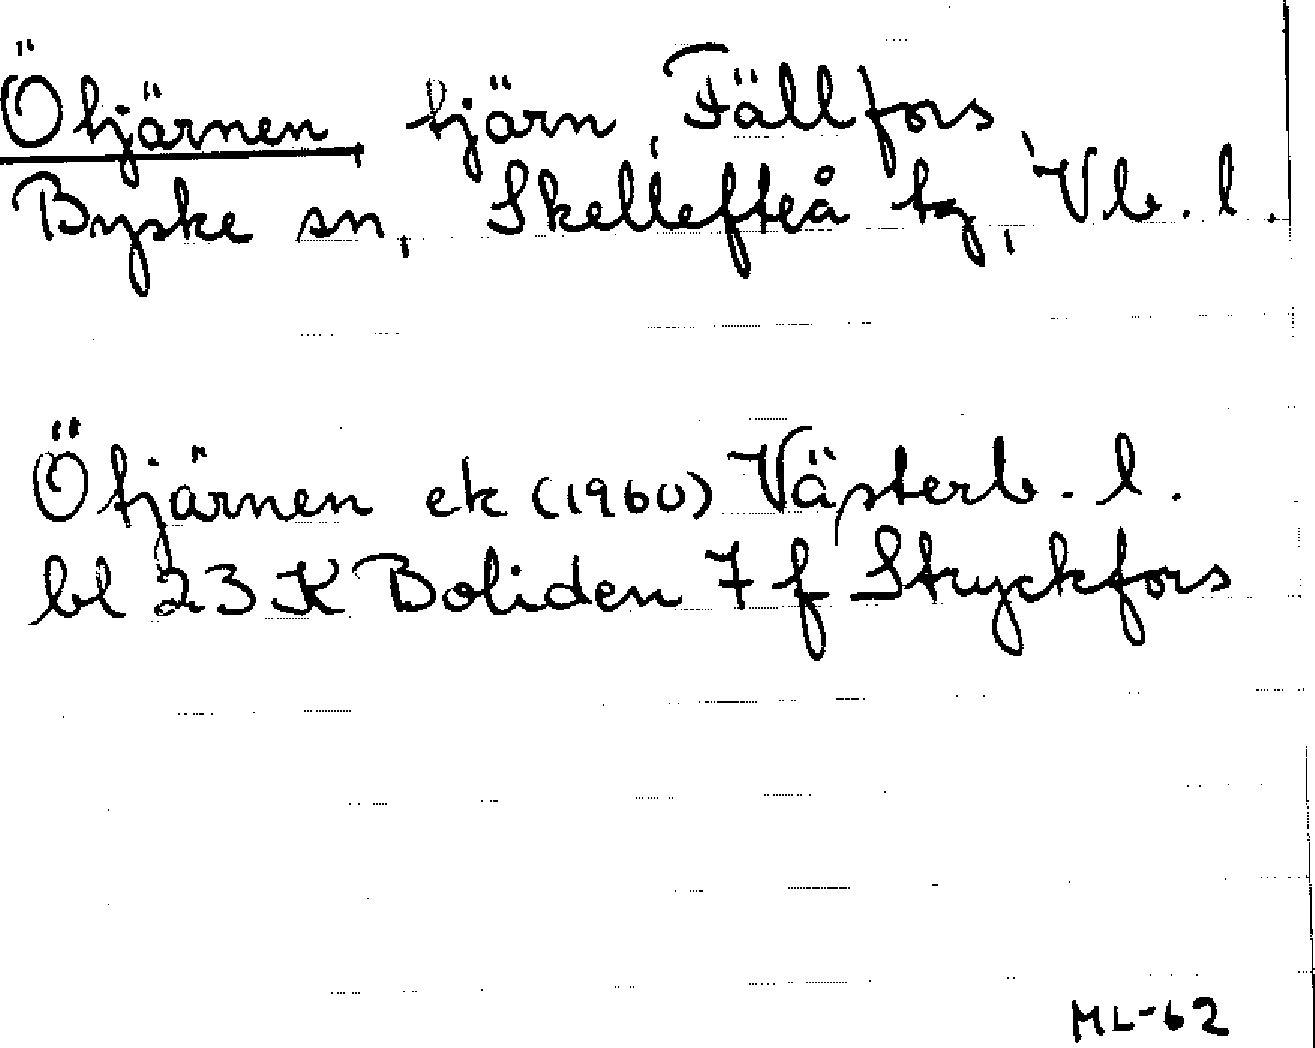 Ötjärnen, tjärn, Fällfors,
Byske sn, Skellefteå tg, Vb. l.
Ötjärnen ek (1960) Västerb. l.
bl 23 K Boliden 7 f Stryckfors
ML-62